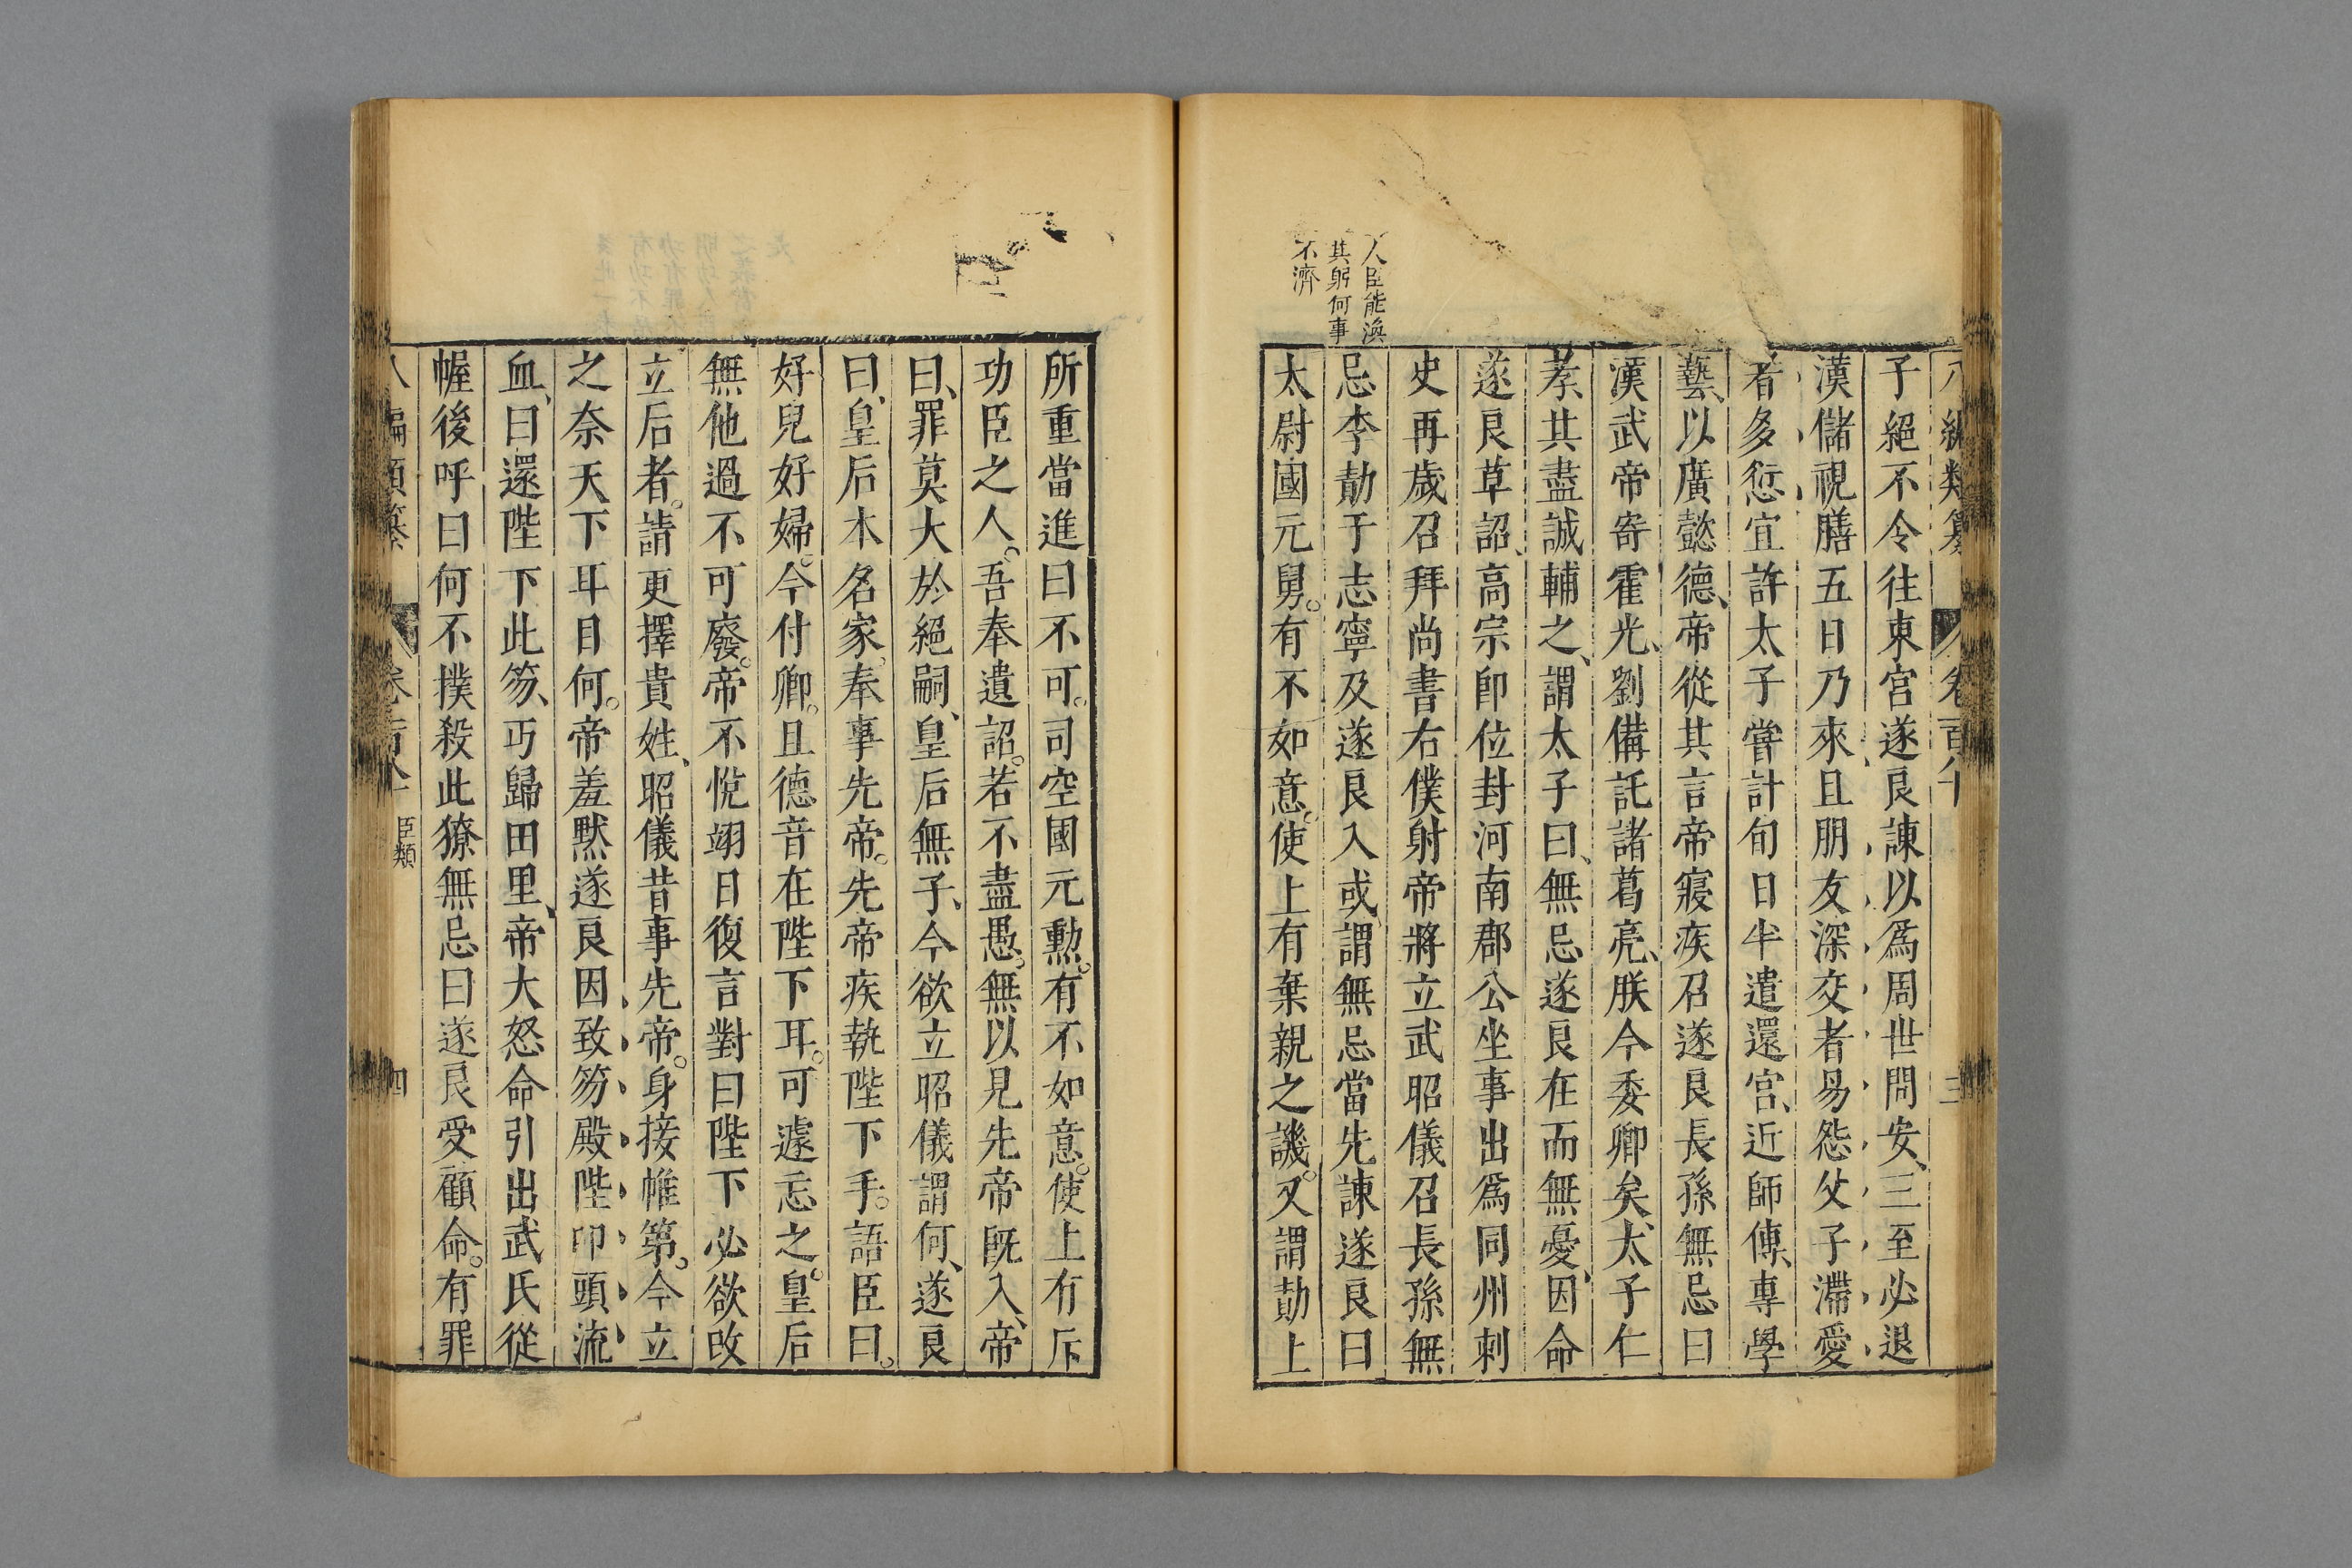 子絕不令往東宮遂良諫以爲周世問安、三至必退
漢儲視膳五日乃來且朋友深交者易怨父子滯愛
者多愆宜許太子嘗計旬日半遣還宮、近師傅、專學
藝、以廣懿德、帝從其言帝寢疾召遂良長孫無忌曰
漢武帝寄霍光、劉備託諸葛亮、朕今委卿矣、太子仁
孝其盡誠輔之、謂太子曰、無忌遂良在而無憂、因命
遂良草詔、高宗卽位封河南郡公坐事出爲同州刺
史再歲召拜尚書右僕射帝將立武昭儀召長孫無
忌李勣于志寧及遂良入或謂無忌當先諫遂良曰
太尉國元舅。有不如意。使上有棄親之譏。又謂勣上
人臣能渙
其躬何事
不濟
八編類纂 卷百八十 三
所重當進曰不可。司空國元勳。有不如意。使上有斥
功臣之人。吾奉遺詔。若不盡愚。無以見先帝旣入、帝
曰、罪莫大於絕嗣、皇后無子、今欲立昭儀謂何、遂良
曰、皇后木名家。奉事先帝。先帝疾執陛下手。語臣曰。
好兒好婦。今付卿。且德音在陛下耳。可遽忘之。皇后
無他過不可廢。帝不悅翊日復言對曰陛下必欲改
立后者。請更擇貴姓、昭儀昔事先帝。身接帷第。今立
之奈天下耳目何。帝羞默遂良因致笏殿陛叩頭流
血、曰還陛下此笏、丐歸田里、帝大怒命引出武氏從
幄後呼曰何不撲殺此獠無忌曰遂良受顧命。有罪
八編類纂 卷百八十 臣類 四